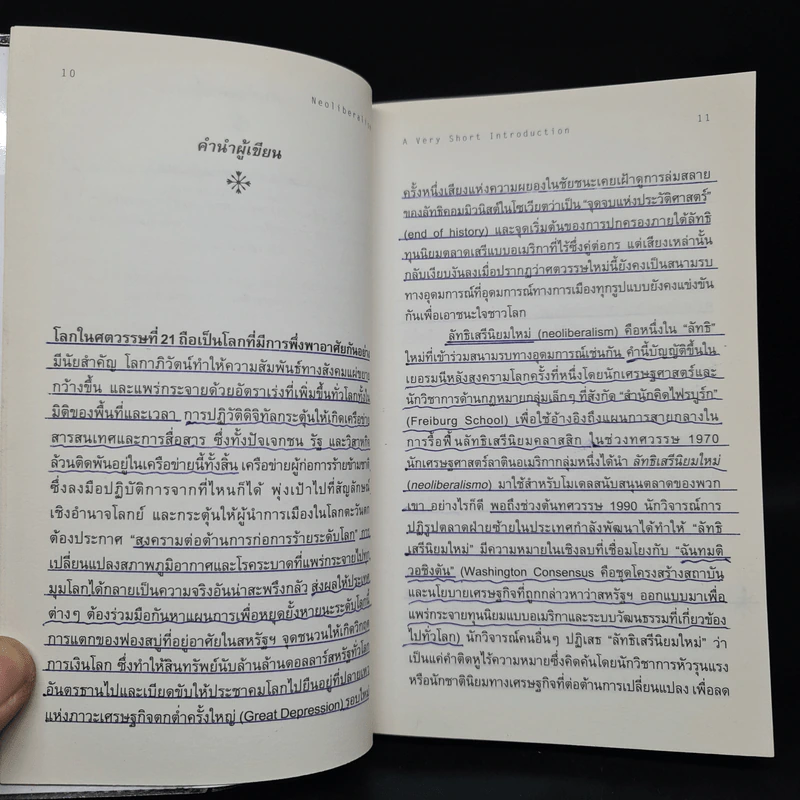 10
Neoliberalism
คำนำผู้เขียน
โลกในศตวรรษที่ 21 ถือเป็นโลกที่มีการพึ่งพาอาศัยกันอย่าง
มีนัยสำคัญ โลกาภิวัตน์ทำให้ความสัมพันธ์ทางสังคมแผ่ขยาย
กว้างขึ้น และแพร่กระจายด้วยอัตราเร่งที่เพิ่มขึ้นทั่วโลกทั้งใน
มิติของพื้นที่และเวลา การปฏิวัติดิจิทัลกระตุ้นให้เกิดเครือข่าย
สารสนเทศและการสื่อสาร ซึ่งทั้งปัจเจกชน รัฐ และวิสาหกิจ
ล้วนติดพันอยู่ในเครือข่ายนี้ทั้งสิ้น เครือข่ายผู้ก่อการร้ายข้ามชาติ
ซึ่งลงมือปฏิบัติการจากที่ไหนก็ได้ พุ่งเป้าไปที่สัญลักษณ์
เชิงอำนาจโลกย์ และกระตุ้นให้ผู้นำการเมืองในโลกตะวันตก
ต้องประกาศ “สงครามต่อต้านการก่อการร้ายระดับโลก” ภาวะ
เปลี่ยนแปลงสภาพภูมิอากาศและโรคระบาดที่แพร่กระจายไปทุก
มุมโลกได้กลายเป็นความจริงอันน่าสะพรึงกลัว ส่งผลให้ประเทศ
ต่างๆ ต้องร่วมมือกันหาแผนการเพื่อหยุดยั้งหายนะระดับโลกนี้
การแตกของฟองสบู่ที่อยู่อาศัยในสหรัฐฯ จุดชนวนให้เกิดวิกฤต
การเงินโลก ซึ่งทำให้สินทรัพย์นับล้านล้านดอลลาร์สหรัฐทั่วโลก
อันตรธานไปและเบียดขับให้ประชาคมโลกไปยืนอยู่ที่ปลายเหว
แห่งภาวะเศรษฐกิจตกต่ำครั้งใหญ่ (Great Depression) รอบใหม่
A Very Short Introduction
11
ครั้งหนึ่งเสียงแห่งความผยองในชัยชนะเคยเฝ้าดูการล่มสลาย
ของลัทธิคอมมิวนิสต์ในโซเวียตว่าเป็น “จุดจบแห่งประวัติศาสตร์”
(end of history) และจุดเริ่มต้นของการปกครองภายใต้ลัทธิ
ทุนนิยมตลาดเสรีแบบอเมริกาที่ไร้ซึ่งคู่ต่อกร แต่เสียงเหล่านั้น
กลับเงียบงันลงเมื่อปรากฏว่าศตวรรษใหม่นี้ยังคงเป็นสนามรบ
ทางอุดมการณ์ที่อุดมการณ์ทางการเมืองทุกรูปแบบยังคงแข่งขัน
กันเพื่อเอาชนะใจชาวโลก
ลัทธิเสรีนิยมใหม่ (neoliberalism) คือหนึ่งใน “ลัทธิ”
ใหม่ที่เข้าร่วมสนามรบทางอุดมการณ์เช่นกัน คำนี้บัญญัติขึ้นใน
เยอรมนีหลังสงครามโลกครั้งที่หนึ่งโดยนักเศรษฐศาสตร์และ
นักวิชาการด้านกฎหมายกลุ่มเล็กๆ ที่สังกัด “สำนักคิดไฟรบูร์ก”
(Freiburg School) เพื่อใช้อ้างอิงถึงแผนการสายกลางใน
การรื้อฟื้นลัทธิเสรีนิยมคลาสสิก ในช่วงทศวรรษ 1970
นักเศรษฐศาสตร์ลาตินอเมริกากลุ่มหนึ่งได้นำ ลัทธิเสรีนิยมใหม่
(neoliberalismo) มาใช้สำหรับโมเดลสนับสนุนตลาดของพวก
เขา อย่างไรก็ดี พอถึงช่วงต้นทศวรรษ 1990 นักวิจารณ์การ
ปฏิรูปตลาดฝ่ายซ้ายในประเทศกำลังพัฒนาได้ทำให้ “ลัทธิ
เสรีนิยมใหม่” มีความหมายในเชิงลบที่เชื่อมโยงกับ “ฉันทมติ
วอชิงตัน” (Washington Consensus คือชุดโครงสร้างสถาบัน
และนโยบายเศรษฐกิจที่ถูกกล่าวหาว่าสหรัฐฯ ออกแบบมาเพื่อ
แพร่กระจายทุนนิยมแบบอเมริกาและระบบวัฒนธรรมที่เกี่ยวข้อง
ไปทั่วโลก) นักวิจารณ์คนอื่นๆ ปฏิเสธ “ลัทธิเสรีนิยมใหม่” ว่า
เป็นแค่คำติดหูไร้ความหมายซึ่งคิดค้นโดยนักวิชาการหัวรุนแรง
หรือนักชาตินิยมทางเศรษฐกิจที่ต่อต้านการเปลี่ยนแปลง เพื่อลด